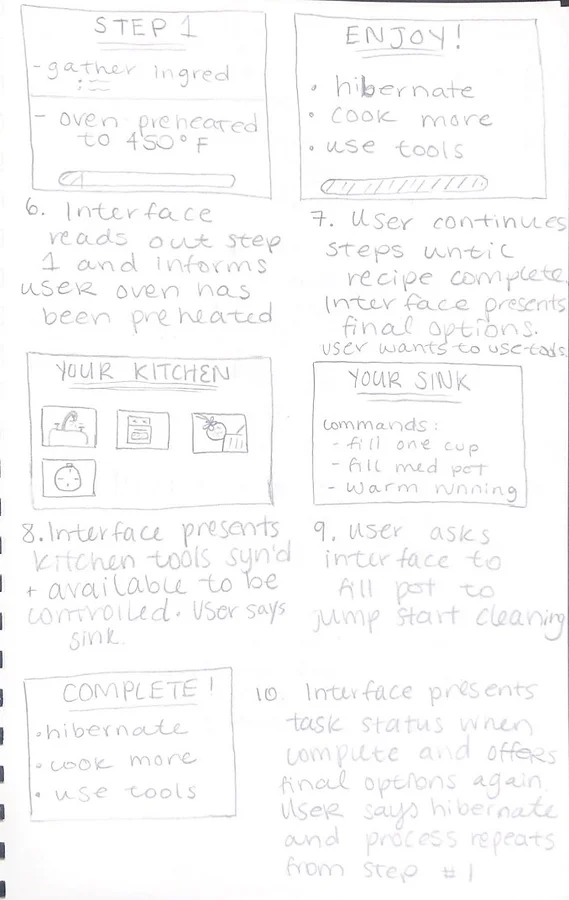 STEP 1
- gather ingred
- oven preheated
to 450° F
6. Interface
reads out step
1 and informs
user oven has
been preheated
ENJOY!
• hibernate
• cook more
• use tools
7. User continues
steps until
recipe complete.
Interface presents
final options.
user wants to use tools.
YOUR KITCHEN
8. Interface presents
kitchen tools syn'd
+ available to be
controlled. User says
sink.
YOUR SINK
commands:
- fill one cup
- fill med pot
- warm running
9. User asks
interface to
fill pot to
jump start cleaning
COMPLETE!
• hibernate
• cook more
• use tools
10. Interface presents
task status when
complete and offers
final options again.
User says hibernate
and process repeats
from step #1